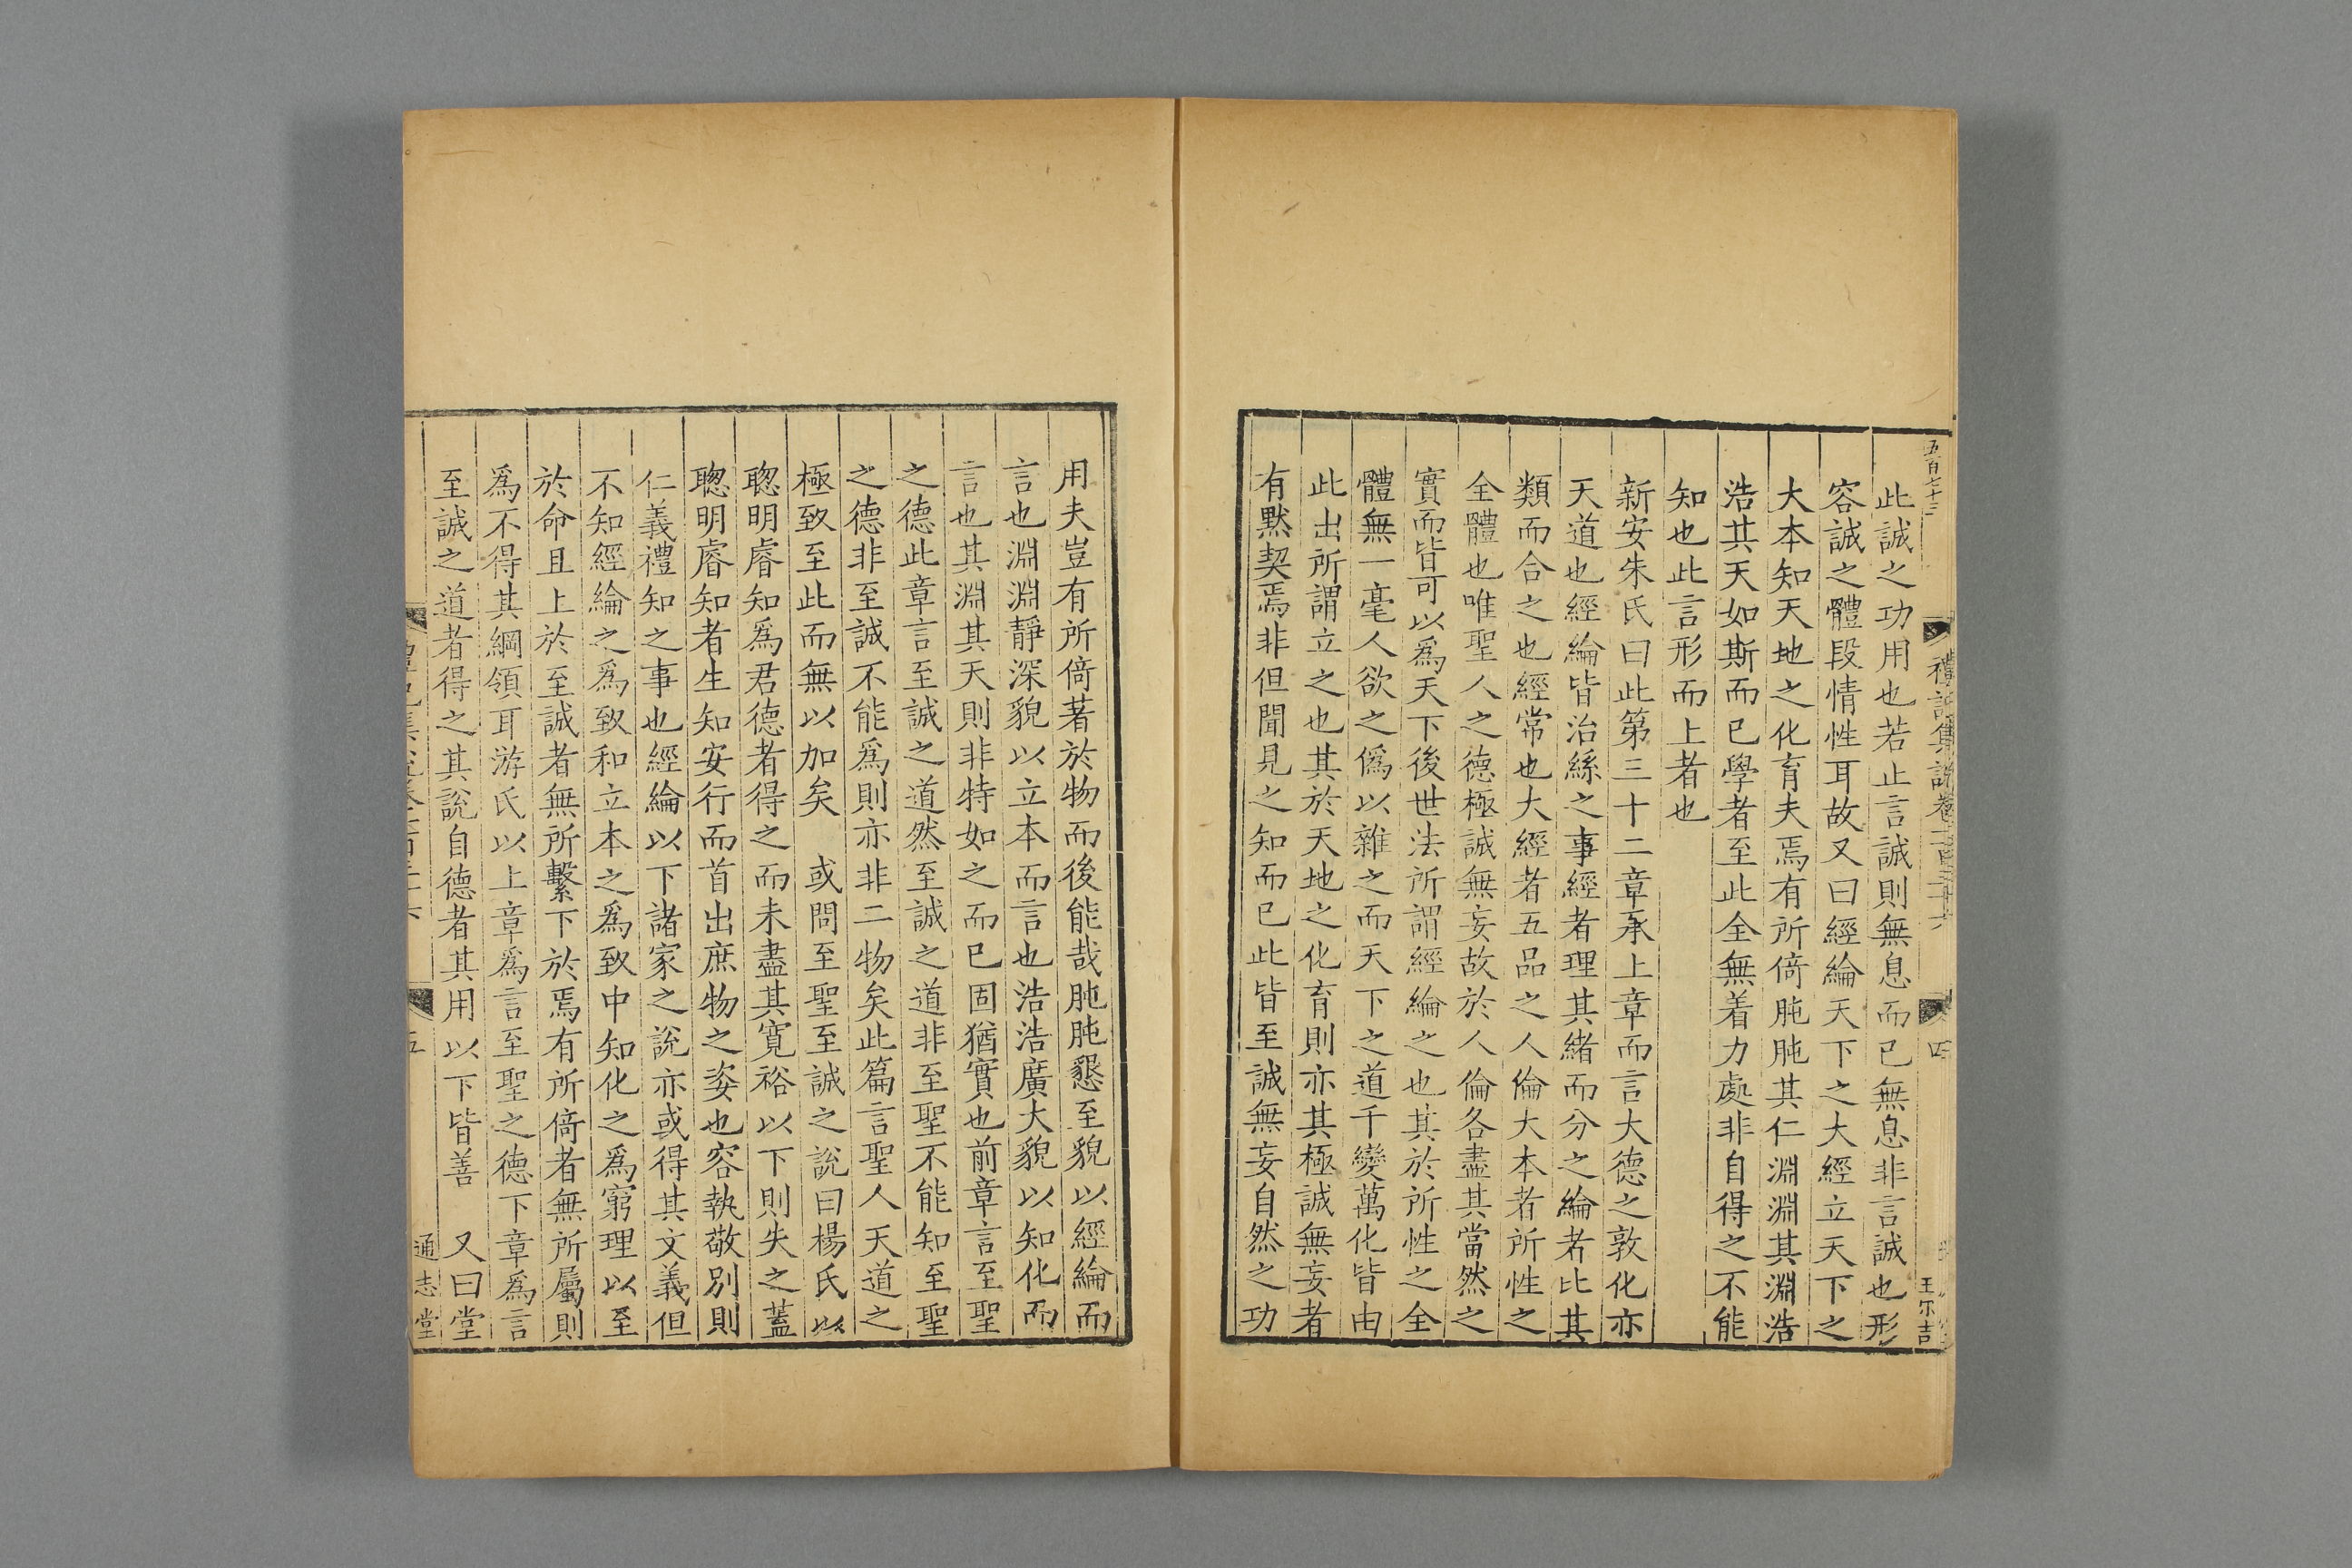 五百七十三
禮記集說卷一百三十六
四
王尔吉
此誠之功用也若止言誠則無息而已無息非言誠也形
容誠之體段情性耳故又曰經綸天下之大經立天下之
大本知天地之化育夫焉有所倚肫肫其仁淵淵其淵浩
浩其天如斯而已學者至此全無着力處非自得之不能
知也此言形而上者也
新安朱氏曰此第三十二章承上章而言大德之敦化亦
天道也經綸皆治絲之事經者理其緒而分之綸者比其
類而合之也經常也大經者五品之人倫大本者所性之
全體也唯聖人之德極誠無妄故於人倫各盡其當然之
實而皆可以爲天下後世法所謂經綸之也其於所性之全
體無一毫人欲之僞以雜之而天下之道千變萬化皆由
此出所謂立之也其於天地之化育則亦其極誠無妄者
有黙契焉非但聞見之知而已此皆至誠無妄自然之功
用夫豈有所倚著於物而後能哉肫肫懇至貌以經綸而
言也淵淵靜深貌以立本而言也浩浩廣大貌以知化而
言也其淵其天則非特如之而已固猶實也前章言至聖
之德此章言至誠之道然至誠之道非至聖不能知至聖
之德非至誠不能爲則亦非二物矣此篇言聖人天道之
極致至此而無以加矣 或問至聖至誠之說曰楊氏以
聦明睿知爲君德者得之而未盡其寬裕以下則失之蓋
聦明睿知者生知安行而首出庶物之姿也容執敬别則
仁義禮知之事也經綸以下諸家之說亦或得其文義但
不知經綸之爲致和立本之爲致中知化之爲窮理以至
於命且上於至誠者無所繫下於焉有所倚者無所屬則
爲不得其綱領耳游氏以上章爲言至聖之德下章爲言
至誠之道者得之其說自德者其用以下皆善 又曰堂
五
通志堂